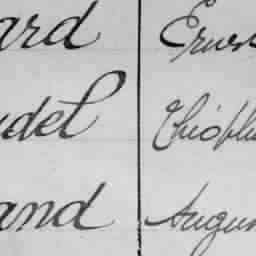 ard Ernes
udel Théophi
and Augus